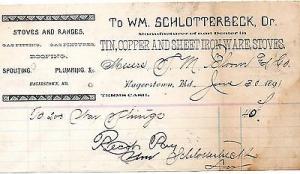 STOVES AND RANGES,
GAS FITTING, GAS FIXTURES,
ROOFING,
SPOUTING, PLUMBING, &c.
HAGERSTOWN, MD.
To WM. SCHLOTTERBECK, Dr.
Manufacturer of and Dealer in
TIN, COPPER AND SHEET IRON WARE, STOVES,
Messrs
Hagerstown, Md. June 30 1891
TERMS CASH.
To 200
40
Recd Pay
Wm Schlotterbeck